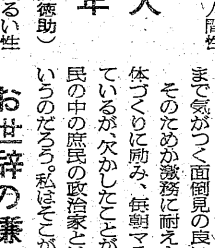 まで気がつく面倒見の良
そのためか激務に耐え
体づくりに励み、毎朝マ
ているが、欠かしたことが
民の中の庶民の政治家と
いうのだろう。私はそこが
人
年
徳助）
るい性
お世辞の兼